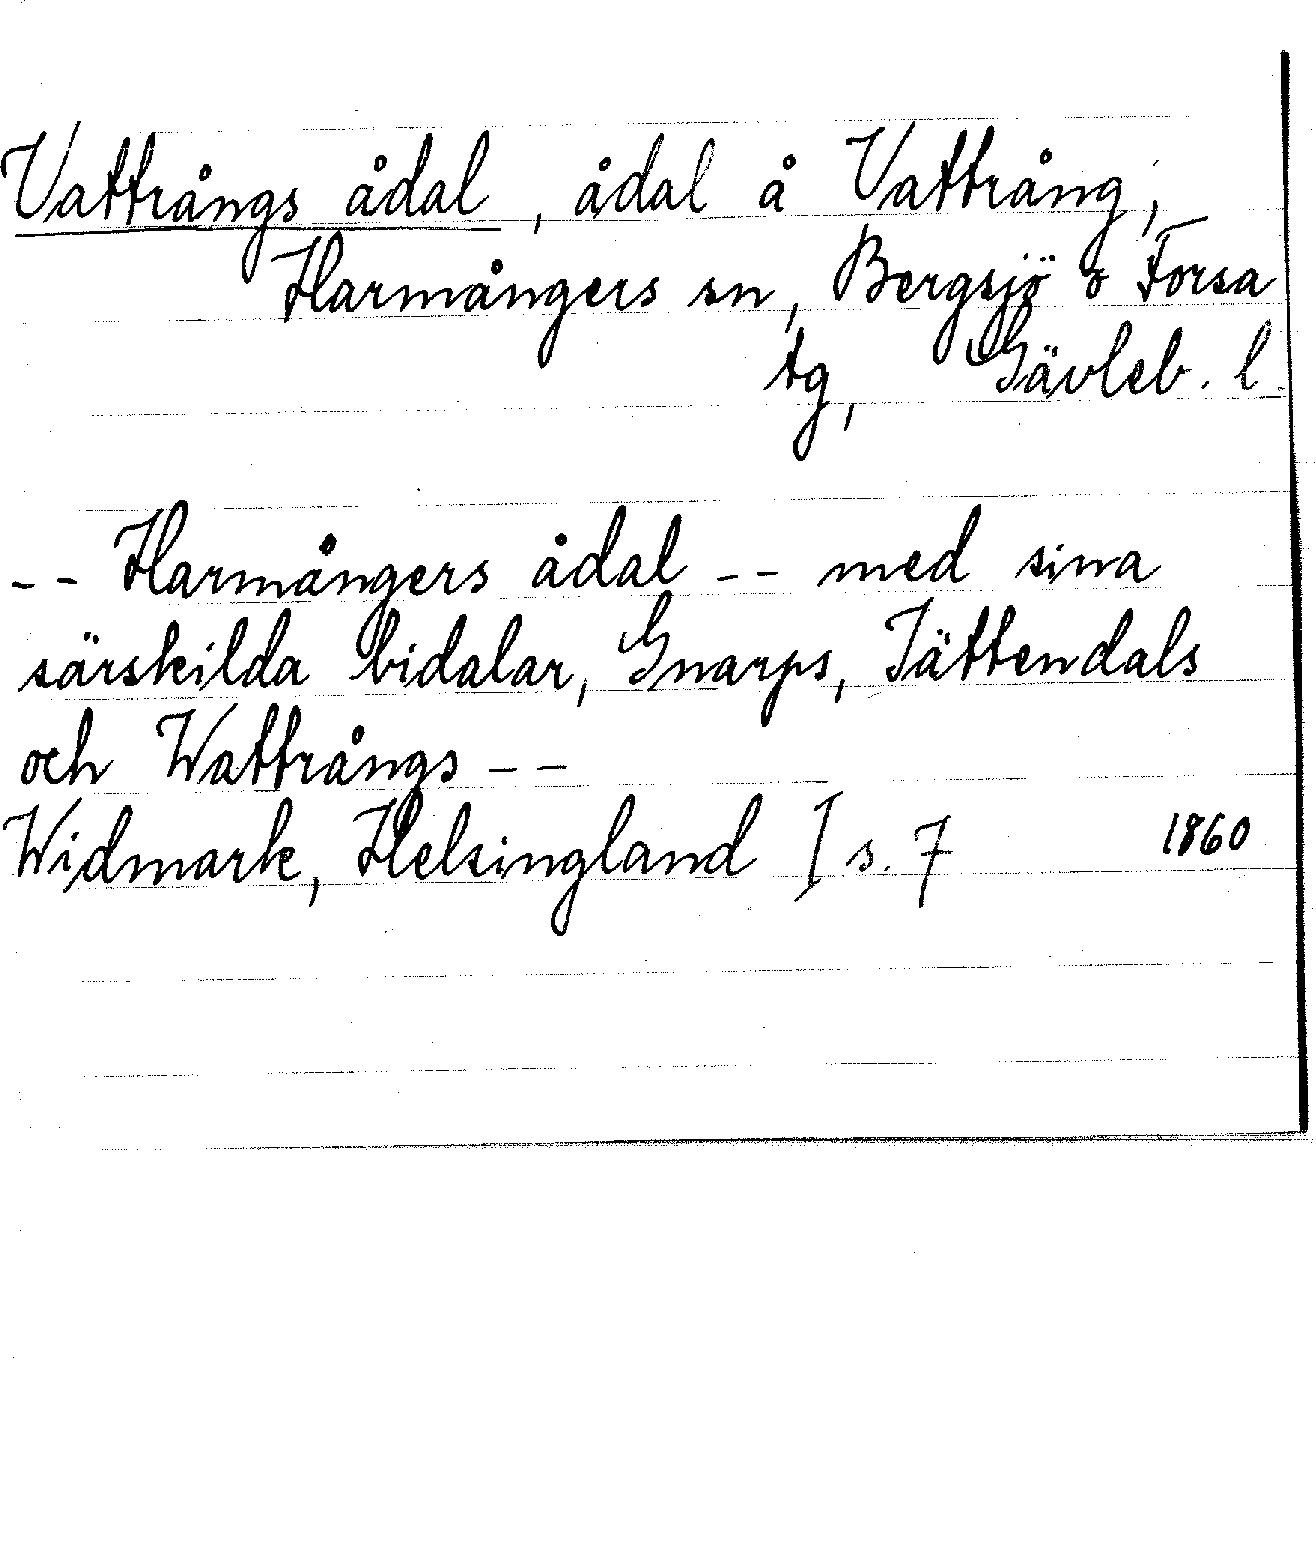 Vattrångs ådal, ådal å Vattrång,
Harmångers sn, Bergsjö o Forsa
tg, Gävleb. l.
-- Harmångers ådal -- med sina
särskilda bidalar, Gnarps, Jättendals
och Wattrångs --
Widmark, Helsingland I s. 7 1860